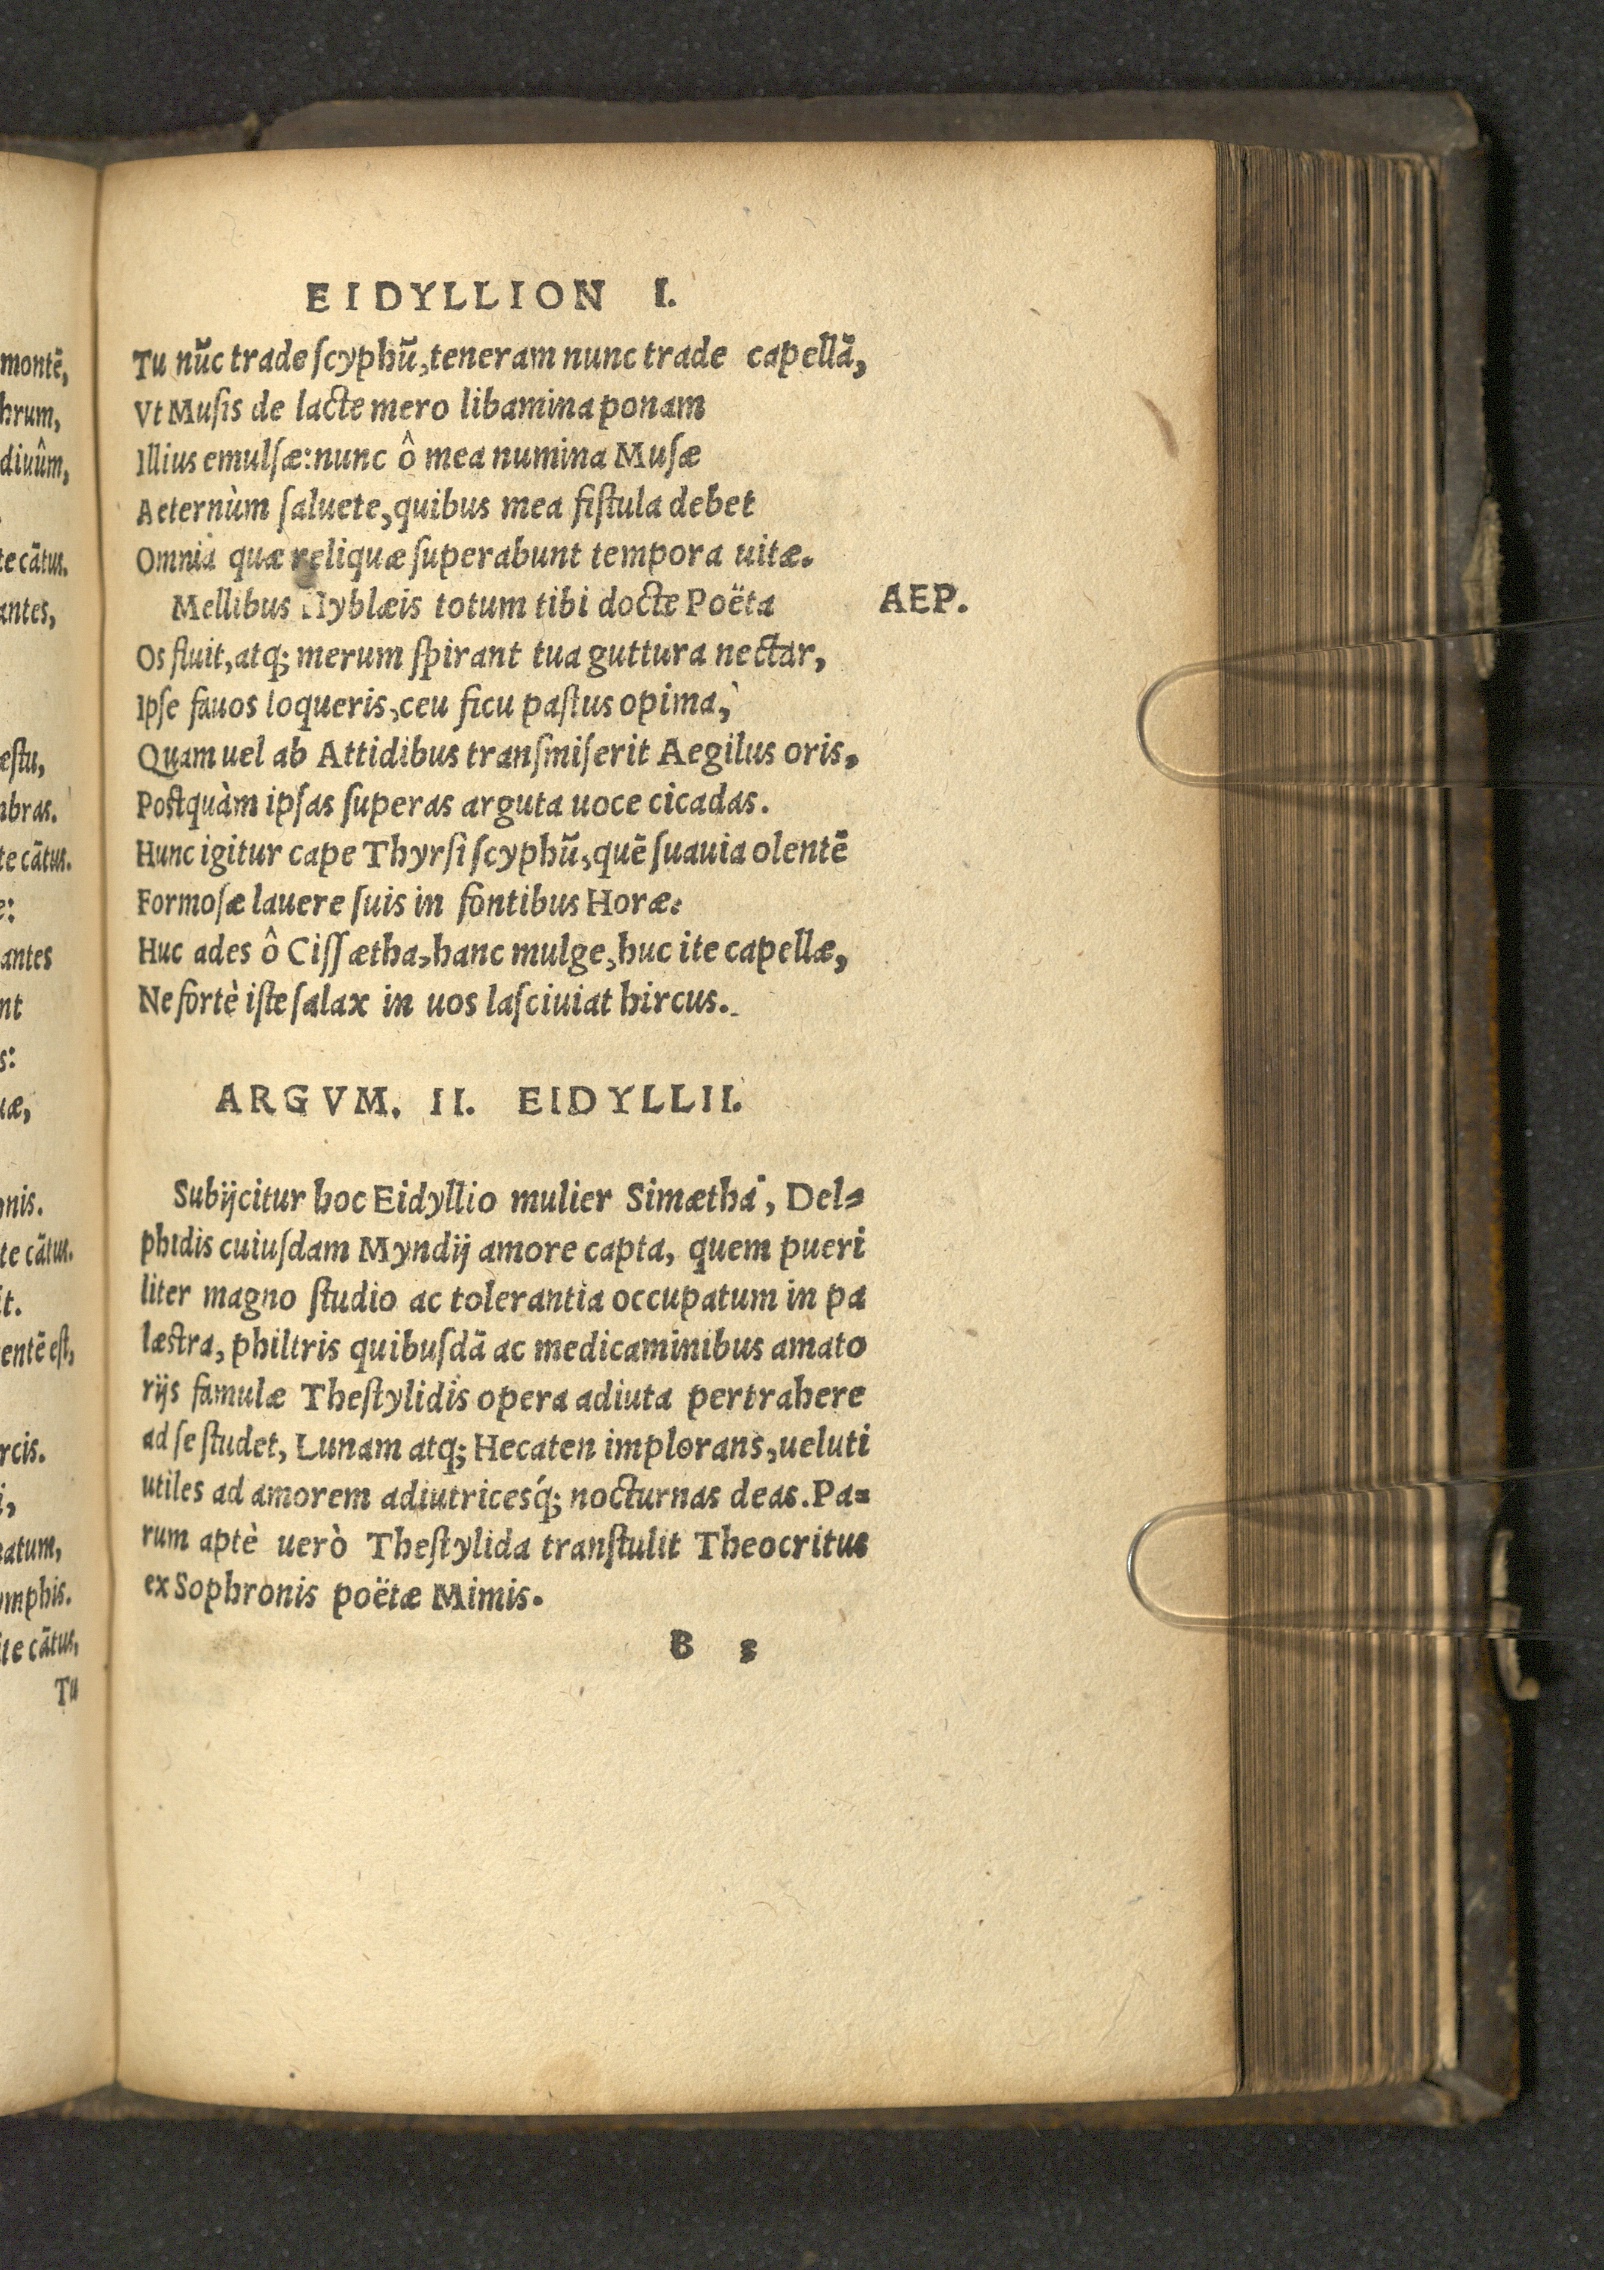 EIDYLLION I.
Tu nūc trade ſcyphū, teneram nunc trade capellā,
Vt Muſis de lacte mero libamina ponam
Illius emulſæ: nunc ô mea numina Muſæ
Aeternùm ſaluete, quibus mea fiſtula debet
Omnia quæ reliquæ ſuperabunt tempora uitæ.
Mellibus Hyblæis totum tibi docte Poëta AEP.
Os fluit, atq; merum ſpirant tua guttura nectar,
Ipſe fauos loqueris, ceu ficu paſtus opima,
Quam uel ab Attidibus tranſmiſerit Aegilus oris,
Poſtquàm ipſas ſuperas arguta uoce cicadas.
Hunc igitur cape Thyrſi ſcyphū, quē ſuauia olentē
Formoſæ lauere ſuis in fontibus Horæ.
Huc ades ô Ciſſætha, hanc mulge, huc ite capellæ,
Ne fortè iſte ſalax in uos laſciuiat hircus.
ARGVM. II. EIDYLLII.
Subijcitur hoc Eidyllio mulier Simætha, Del=
phidis cuiuſdam Myndij amore capta, quem pueri
liter magno ſtudio ac tolerantia occupatum in pa
læſtra, philtris quibuſdā ac medicaminibus amato
rijs famulæ Theſtylidis opera adiuta pertrahere
ad ſe ſtudet, Lunam atq; Hecaten implorans, ueluti
utiles ad amorem adiutricesq́; nocturnas deas. Pa=
rum aptè uerò Theſtylida tranſtulit Theocritus
ex Sophronis poëtæ Mimis.
B
montē,
hrum,
diuûm,
te cātus.
antes,
æſtu,
mbras.
te cātus.
e:
antes
nt
s:
uæ,
onis.
te cātus.
it.
entē eſt,
rcis.
i,
natum,
ymphis.
ite cātus,
Tu